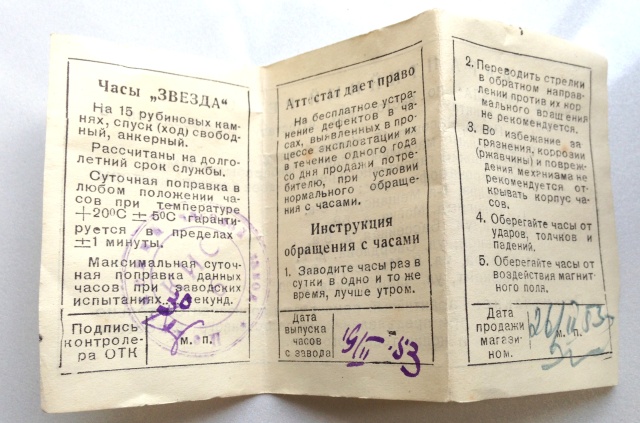 Часы „ЗВЕЗДА“
На 15 рубиновых кам-
нях, спуск (ход) свобод-
ный, анкерный.
Рассчитаны на долго-
летний срок службы.
Суточная поправка в
любом положении ча-
сов при температуре
+20°С ± 5°С гаранти-
руется в пределах
±1 минуты.
Максимальная суточ-
ная поправка данных
часов при заводских
испытаниях 30 секунд.
Подпись
контроле-
ра ОТК
м. п.
Аттестат дает право
На бесплатное устра-
нение дефектов в ча-
сах, выявленных в про-
цессе эксплоатации их
в течение одного года
со дня продажи потре-
бителю, при условии
нормального обраще-
ния с часами.
Инструкция
обращения с часами
1. Заводите часы раз в
сутки в одно и то же
время, лучше утром.
Дата
выпуска
часов
с завода
19/II 53
2. Переводить стрелки
в обратном направ-
лении против их нор-
мального вращения
не рекомендуется.
3. Во избежание заг-
рязнения, коррозии
(ржавчины) и повреж-
дения механизма не
рекомендуется от-
крывать корпус ча-
сов.
4. Оберегайте часы от
ударов, толчков и
падений.
5. Оберегайте часы от
воздействия магнит-
ного поля.
Дата
продажи
магази-
ном.
м. п.